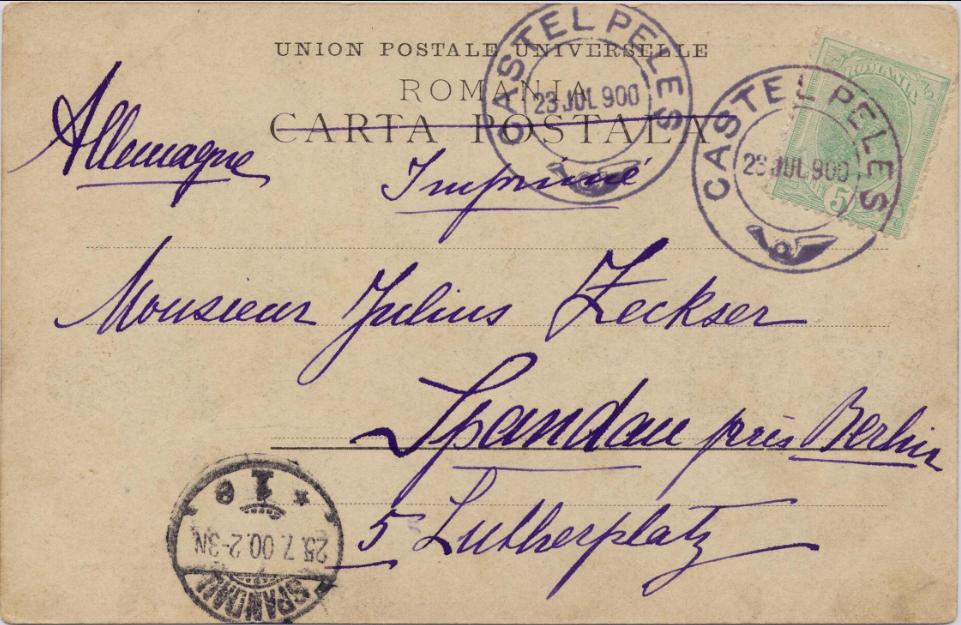 UNION POSTALE UNIVERSELLE
ROMANIA
CARTA POSTALA
CASTEL PELES
23 JUL 900
CASTEL PELES
23 JUL 900
ROMANIA
5
Allemagne
Imprimé
Monsieur Julius Zeckser
Spandau près Berlin
5 Lutherplatz
SPANDAU
25.7.00.2-3N
* 1 e